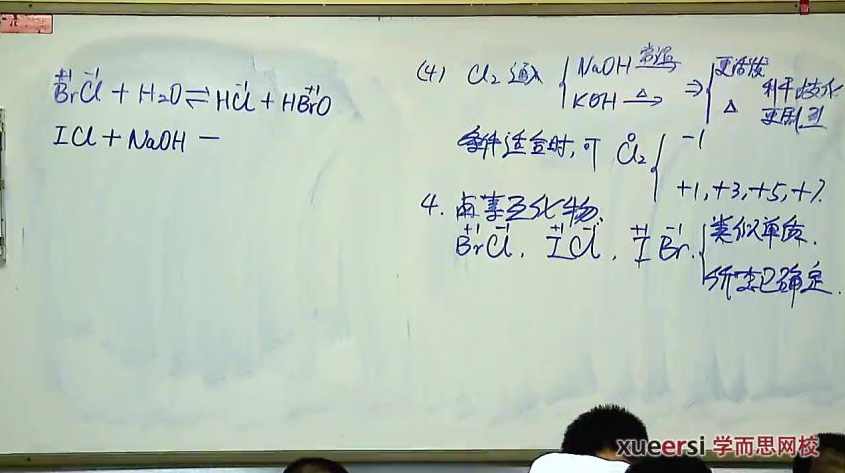 +1 -1 -1 +1
BrCl + H₂O ⇌ HCl + HBrO
ICl + NaOH —
(4) Cl₂ 通入 { NaOH 常温→
KOH △→ ⇒ { 更活泼
△ 利于歧化
更剧烈
条件适合时,可 Cl₂ { -1
0
+1,+3,+5,+7.
4. 卤素互化物.
+1 -1 +1 -1 +1 -1
BrCl, ICl, IBr. { 类似单质.
价态已确定.
xueersi 学而思网校